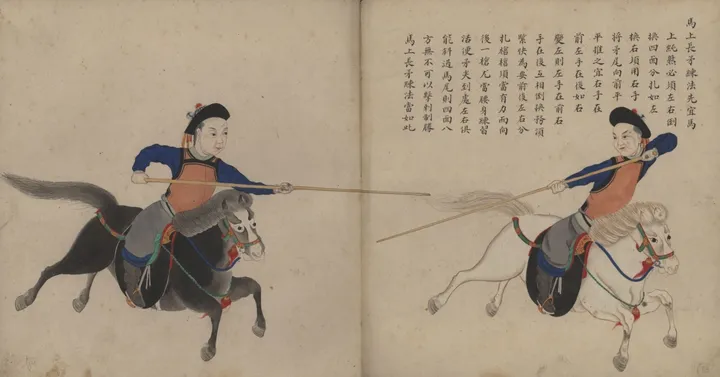 馬上長矛練法先宜馬
上純熟必須左右倒
換四面分扎如左
換右須用右手
將矛尾向前平
平推之宜右手在
前左手在後如右
變左則左手在前右
手在後互相倒換務須
緊快為要前後左右分
扎槍槍須當有力而向
後一槍尤當腰身練習
活便矛尖到處左右俱
能斜過馬尾則四面八
方無不可以擊刺制勝
馬上長矛練法當如此